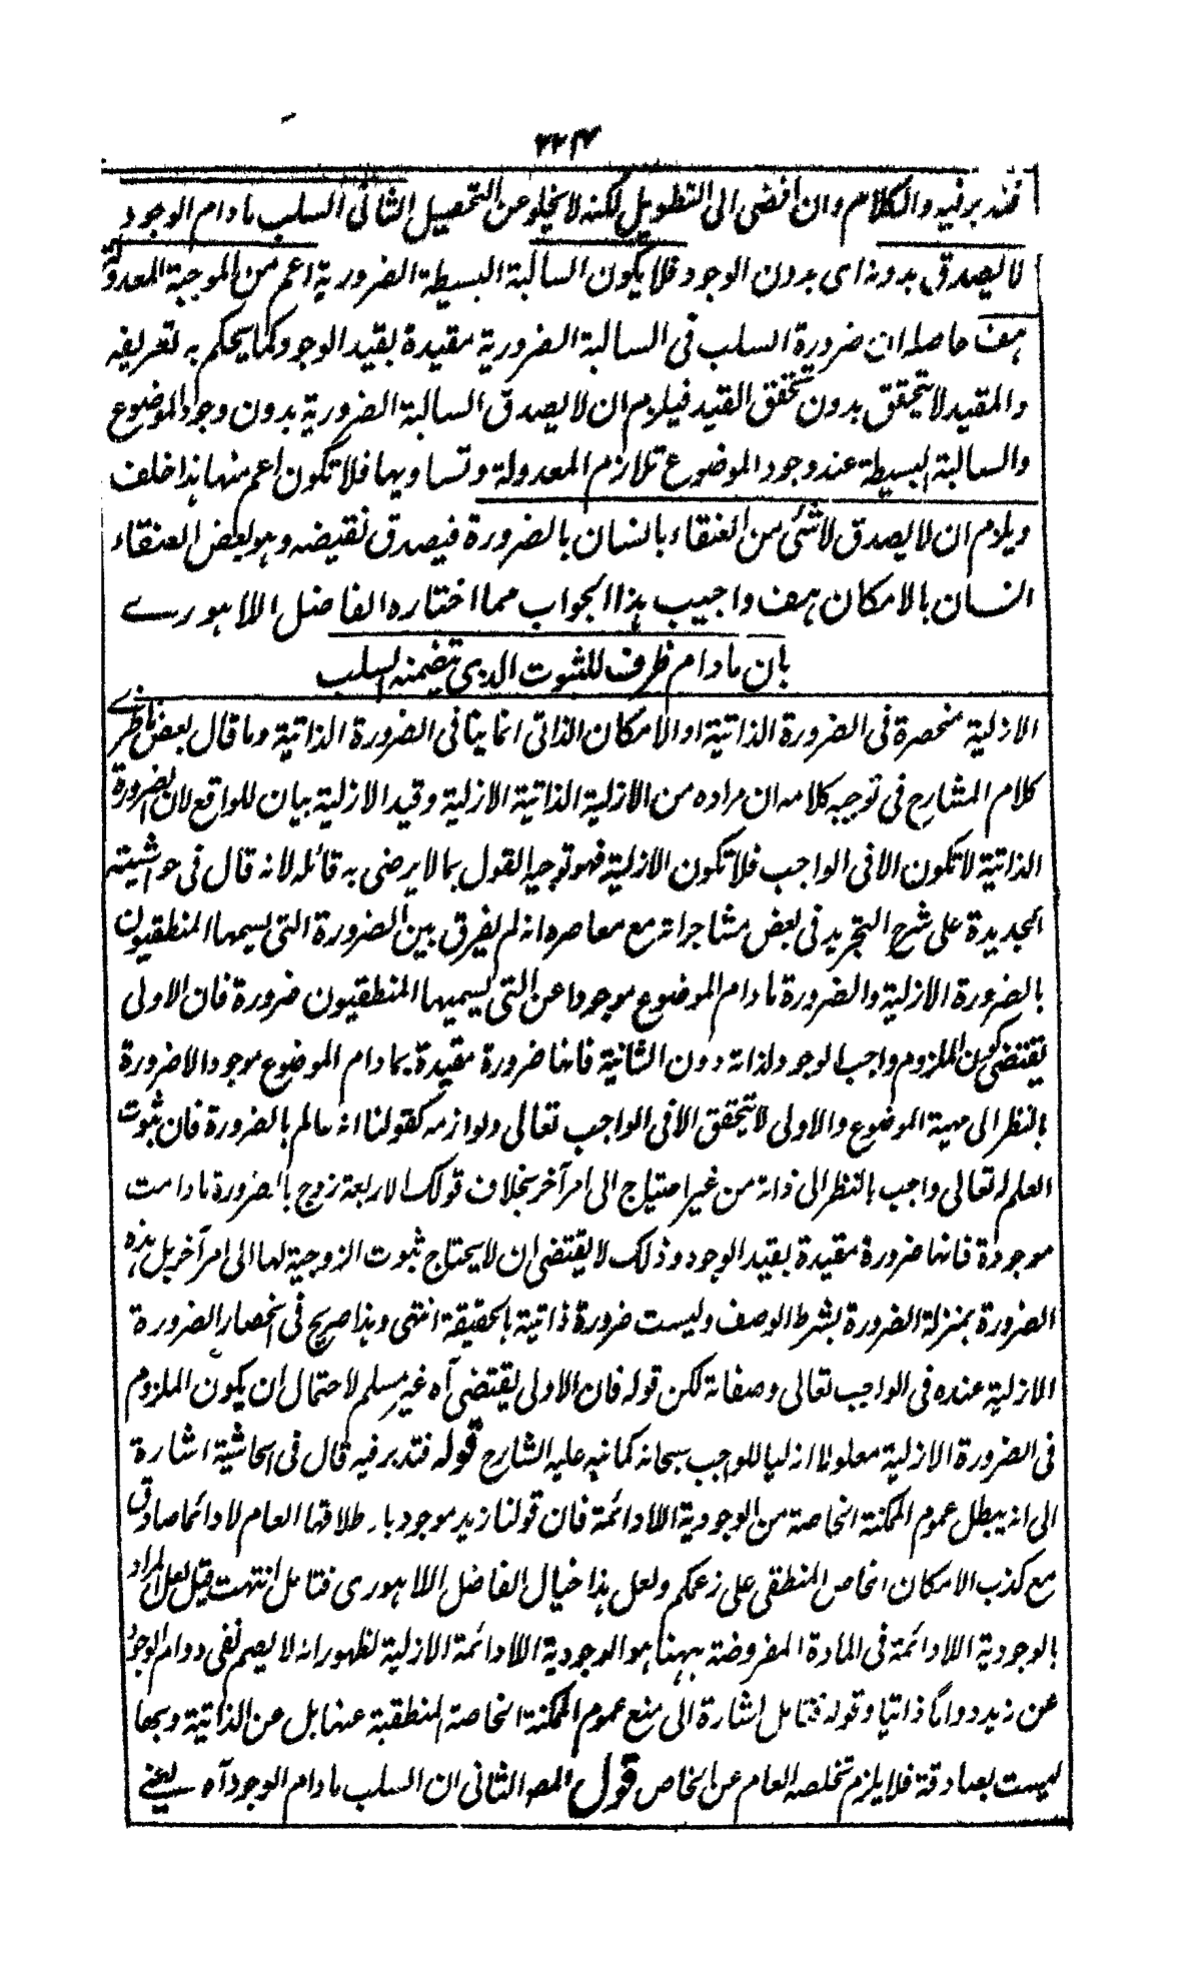 فتدبر فيه والكلام وان افضى الى التطويل لكنه لا يخلو عن التحصيل الثانى السلب مادام الوجود
لا يصدق بدونه اى بدون الوجود فلا يكون السالبة البسيطة الضرورية اعم من الموجبة المعدولة
هف حاصله ان ضرورة السلب فى السالبة الضرورية مقيدة بقيد الوجود كما يحكم به تعريفه
والمقيد لا يتحقق بدون تحقق القيد فيلزم ان لا يصدق السالبة الضرورية بدون وجود الموضوع
والسالبة البسيطة عند وجود الموضوع تلازم المعدولة وتساويها فلا تكون اعم منها هذا خلف
ويلزم ان لا يصدق لا شئ من العنقاء بانسان بالضرورة فيصدق نقيضه وهو بعض العنقاء
انسان بالامكان هف واجيب هذا الجواب مما اختاره الفاضل اللاهورے
بان مادام ظرف للثبوت الذى يتضمنه السلب
الازلية منحصرة فى الضرورة الذاتية او الامكان الذاتى انما ينافى الضرورة الذاتية وما قال بعض ناظرے
كلام الشارح فى توجيه كلامه ان مراده من الازلية الذاتية الازلية وقيد الازلية بيان للواقع لان الضرورة
الذاتية لا تكون الا فى الواجب فلا تكون الا ازلية فهو توجيه القول بما لا يرضى به قائله لانه قال فى حواشيته
الجديدة على شرح التجريد فى بعض مشاجراته مع معاصره انه لم يفرق بين الضرورة التى يسمها المنطقيون
بالضرورة الازلية والضرورة مادام الموضوع موجودا عن التى يسميها المنطقيون ضرورة فان الاولى
يقتضى كون الملزوم واجب الوجود لذاته دون الثانية فانها ضرورة مقيدة بمادام الموضوع موجود الا ضرورة
بالنظر الى مهية الموضوع والاولى لا يتحقق الا فى الواجب تعالى ولوازمه كقولنا انه عالم بالضرورة فان ثبوت
العلم له تعالى واجب بالنظر الى ذاته من غير احتياج الى امر آخر بخلاف قولك الاربعة زوج بالضرورة مادامت
موجودة فانها ضرورة مقيدة بقيد الوجود وذلك لا يقتضى ان لا يحتاج ثبوت الزوجية لها الى امر آخر بل هذه
الضرورة بمنزلة الضرورة بشرط الوصف وليست ضرورة ذاتية بالحقيقة انتهى وهذا صريح فى انحصار الضرورة
الازلية عنده فى الواجب تعالى وصفاته لكن قوله فان الاولى يقتضى آه غير مسلم لاحتمال ان يكون الملزوم
فى الضرورة الازلية معلولا ازليا للواجب سبحانه كما نبه عليه الشارح قوله فتدبر فيه قال فى الحاشية اشارة
الى انه يبطل عموم الممكنة الخاصة من الوجودية اللادائمة فان قولنا زيد موجود باطلاقها العام لا دائما صادق
مع كذب الامكان الخاص المنطقى على زعمكم ولعل هذا خيال الفاضل اللاهورى فتامل انتهت قيل لعل المراد
بالوجودية اللادائمة فى المادة المفروضة ههنا هو الوجودية اللادائمة الازلية لظهور انه لا يصح نفى دوام الوجود
عن زيد دواما ذاتيا وقوله فتامل اشارة الى منع عموم الممكنة الخاصة المنطقية عنها بل عن الذاتية وهها
ليست بصادقة فلا يلزم تخلصه العام عن الخاص قول المصـ الثانى ان السلب مادام الوجود آه يعنے